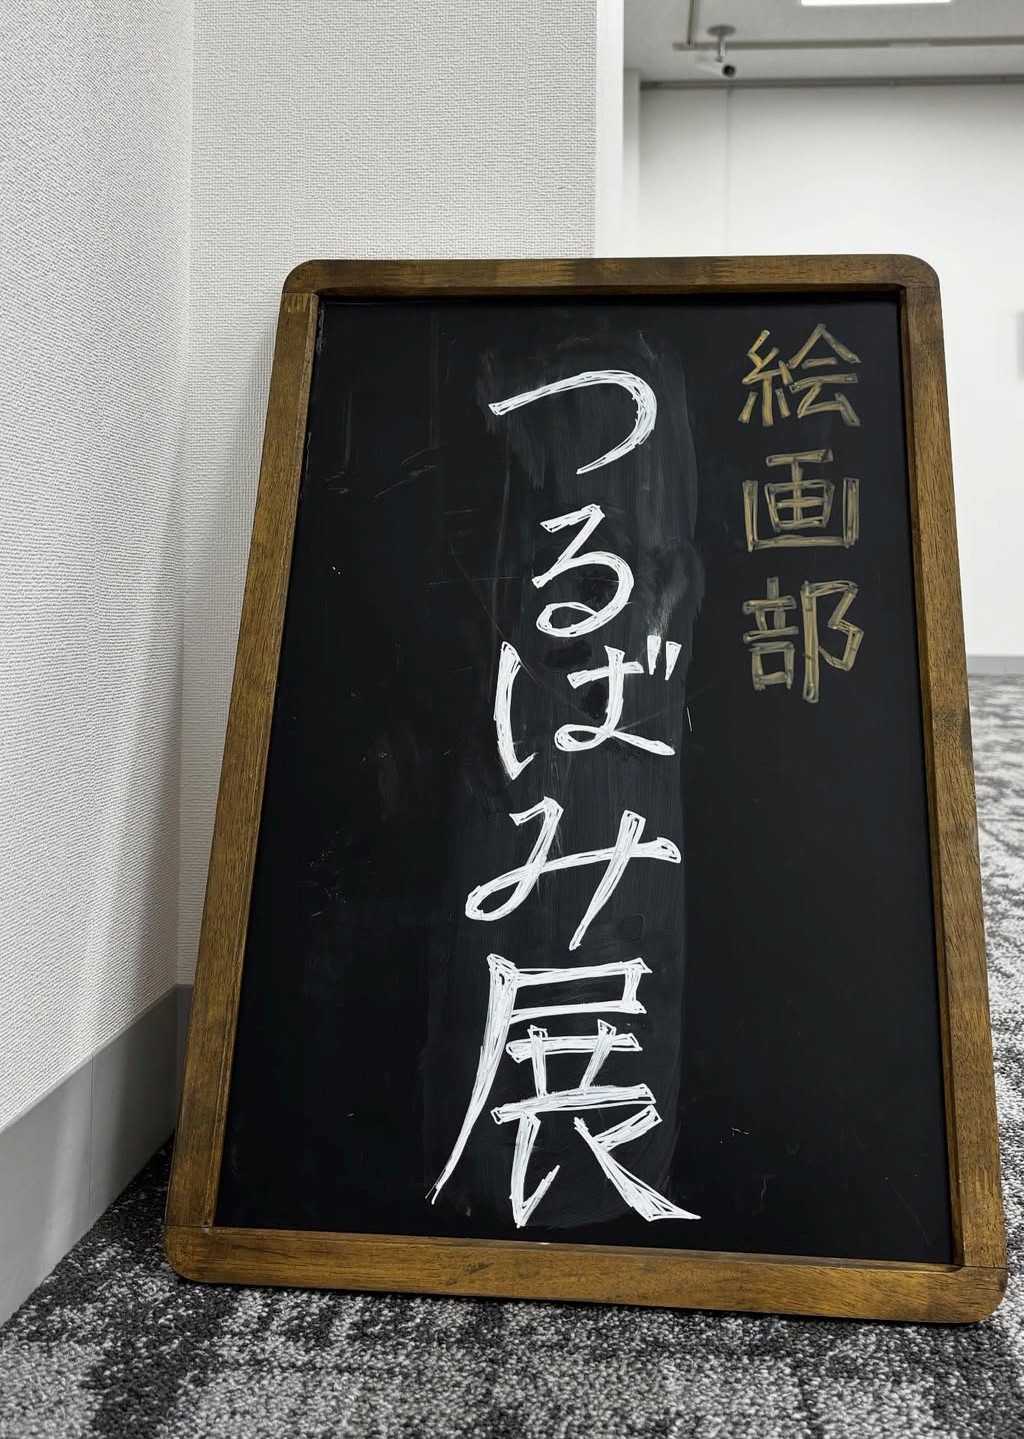 絵画部
つるばみ展